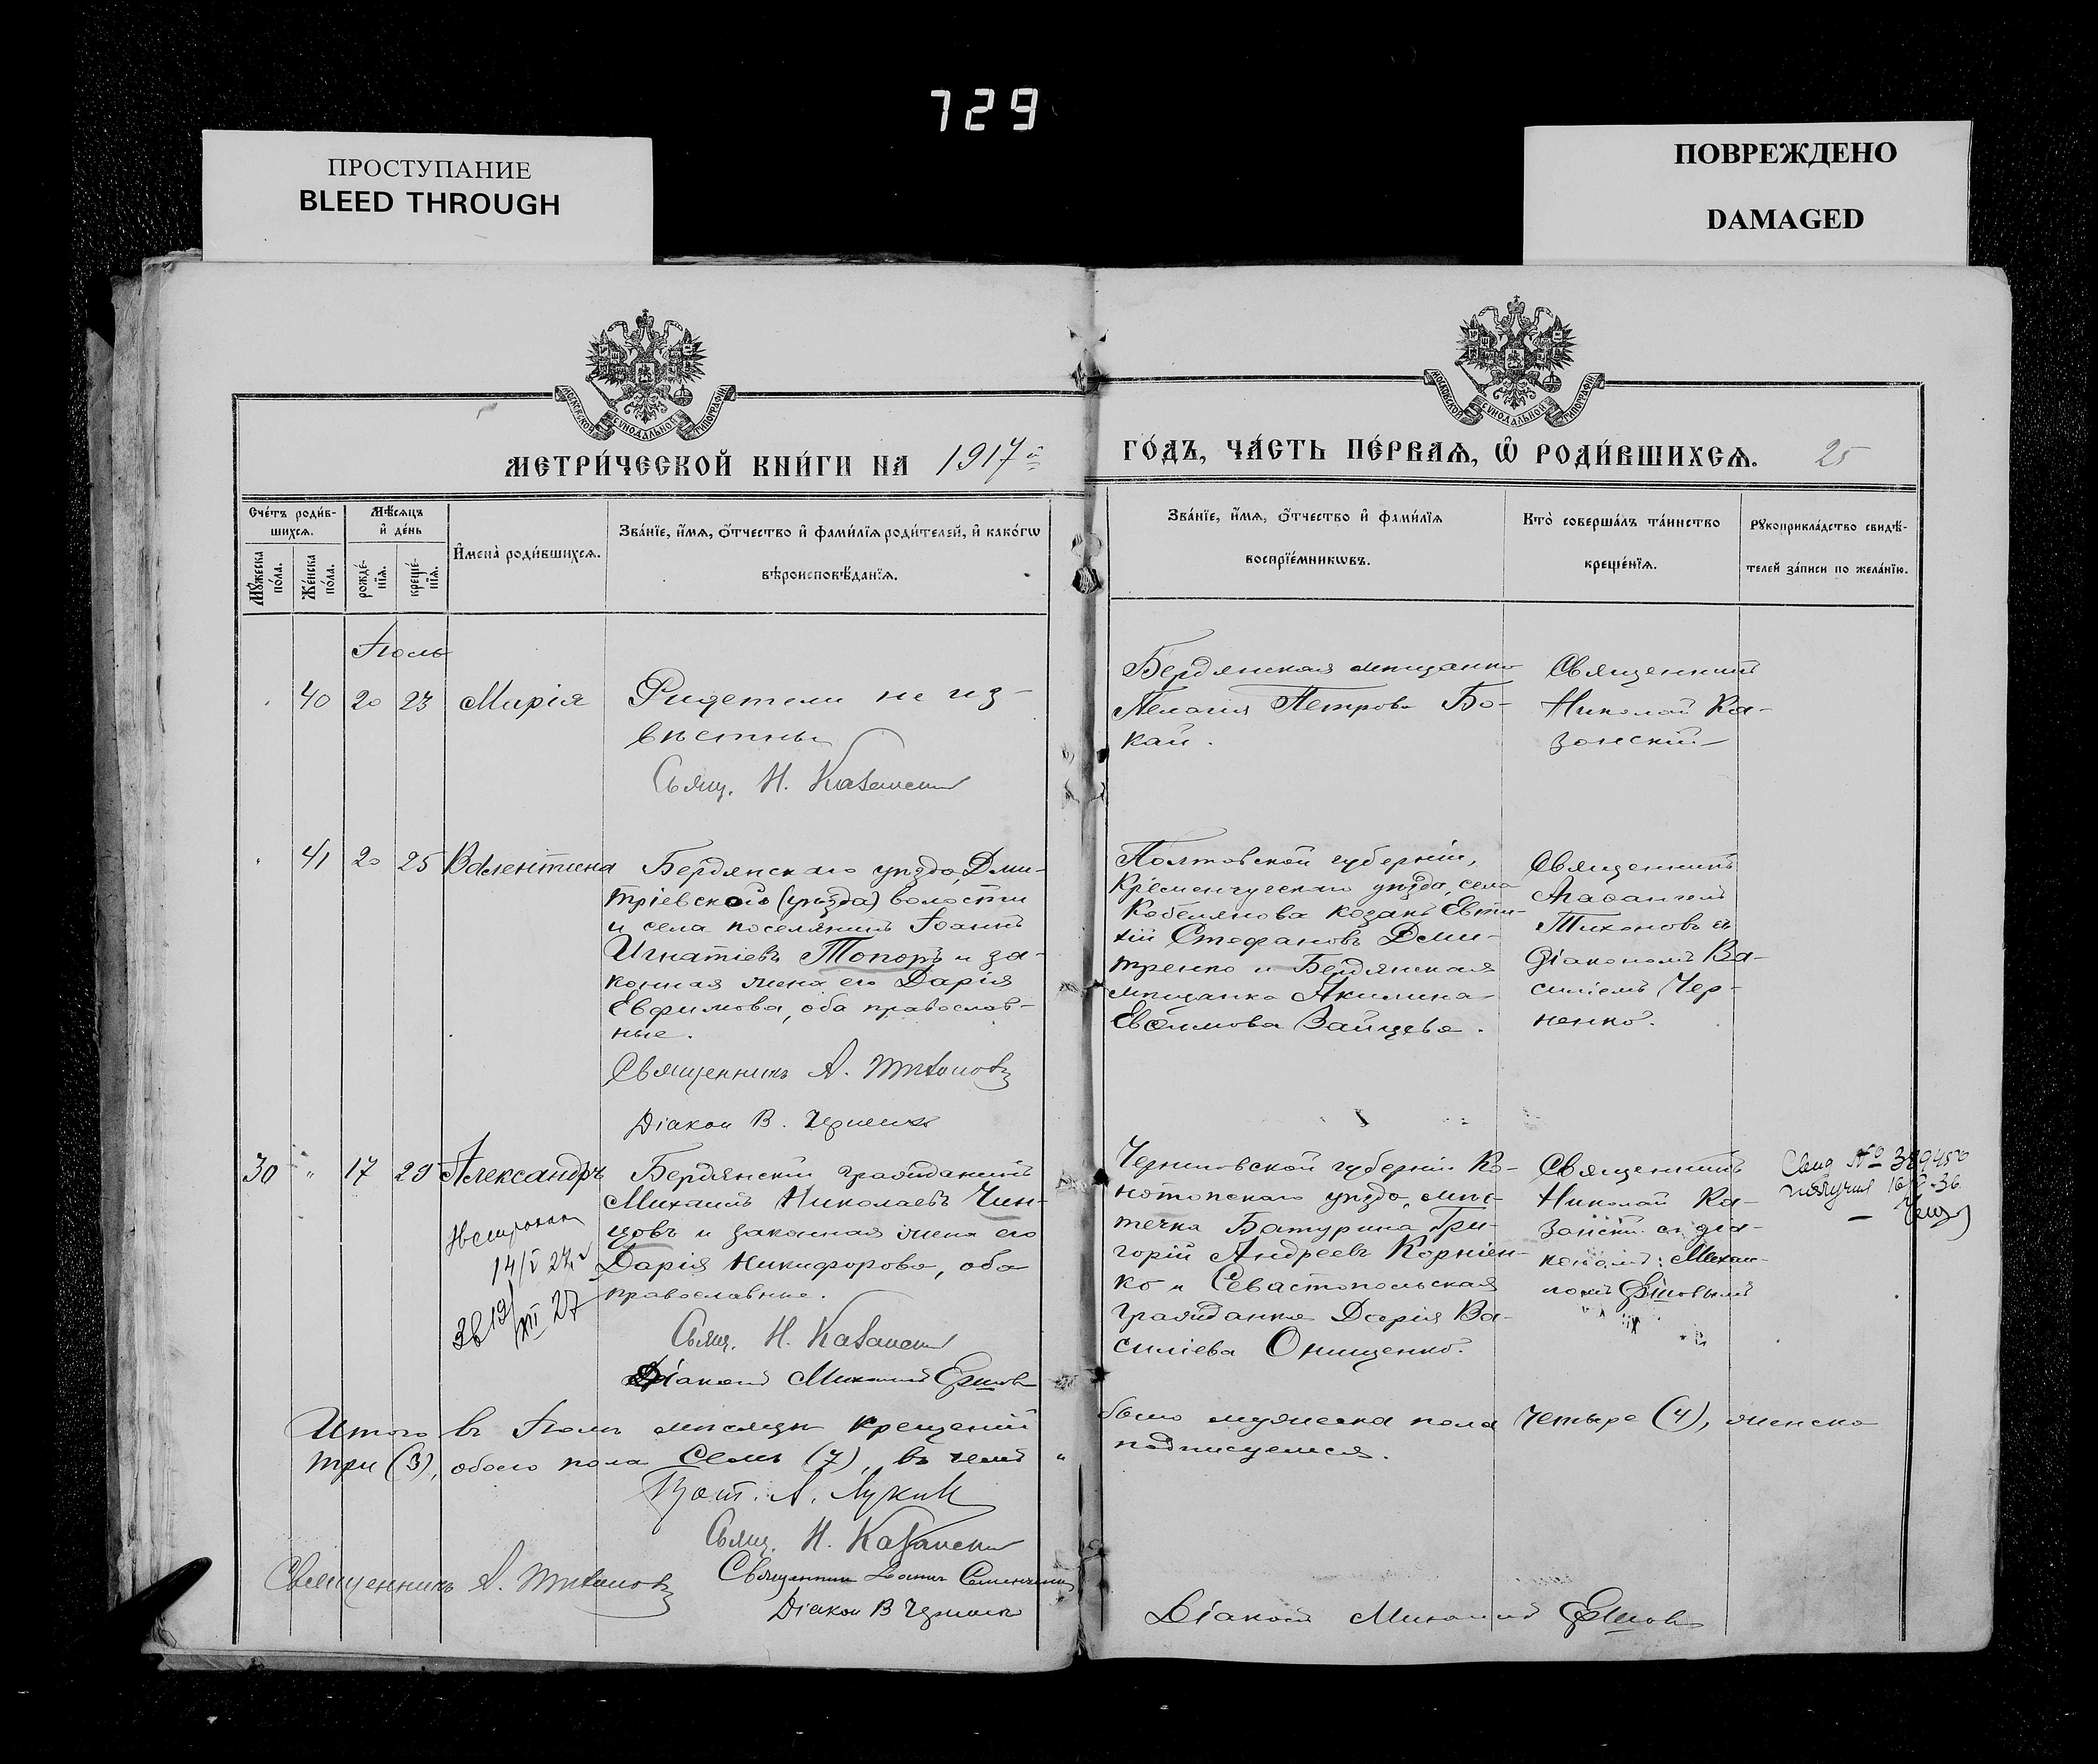 729
ПРОСТУПАНИЕ
BLEED THROUGH
ПОВРЕЖДЕНО
DAMAGED
МОСКОВСКОЙ СѴНОДАЛЬНОЙ ТИПОГРАФІИ
МОСКОВСКОЙ СѴНОДАЛЬНОЙ ТИПОГРАФІИ
МЕТРИ́ЧЕСКОЙ КНИ́ГИ НА 1917й
ГО́ДЪ, ЧА́СТЬ ПЕ́РВАѦ, Ѡ҆ РОДИ́ВШИХСѦ. 25
Сче́тъ роди́в-
шихсѧ.
Мꙋ́жеска по́ла.
Же́нска по́ла.
Мѣ́сѧцъ
и҆ де́нь
рожде́-
нїѧ.
креще́-
нїѧ.
И҆мена̀ роди́вшихсѧ.
Зва́нїе, и҆́мѧ, ѻ҆́тчество и҆ фами́лїѧ роди́телей, и҆ како́гѡ
вѣроисповѣ́данїѧ.
Зва́нїе, и҆́мѧ, ѻ҆́тчество и҆ фами́лїѧ
воспрїе́мникѡвъ.
Кто̀ соверша́лъ та́инство
креще́нїѧ.
Рꙋкоприкла́дство свидѣ́-
телей за́писи по жела́нїю.
Іюль
40 20 23 Марія
Родители не из-
вѣстны
Свящ. Н. Казанскій
Бердянская мѣщанка
Пелагия Петрова Бо-
кай.
Священникъ
Николай Ка-
занскій
41 20 25 Валентина
Бердянскаго уѣзда, Дми-
тріевской (уѣзда) волости
и села поселянинъ Іоаннъ
Игнатіевъ Топоръ и за-
конная жена его Дарія
Евфимова, оба православ-
ные.
Священникъ А. Тихоновъ
Діакон В. Черненко
Полтавской губерніи,
Кременчугскаго уѣзда, села
Кобелякова козакъ Евти-
хій Стефановъ Дми-
тренко и Бердянская
мѣщанка Акилина
Евѳимова Зайцева.
Священникъ
Агаѳангелъ
Тихоновъ съ
діакономъ Ва-
силіемъ Чер-
ненко.
30 " 17 29 Александръ
14/V 27 г
19/XII 27
Бердянскій гражданинъ
Михаилъ Николаевъ Чин-
цовъ и законная жена его
Дарія Никифорова, оба
православные.
Свящ. Н. Казанскій
Діаконъ Михаилъ Ершов
Черниговской губерніи Ко-
нотопскаго уѣзда, мѣс-
течка Батурина Гри-
горій Андреевъ Корніен-
ко и Севастопольская
гражданка Дарія Ва-
силіева Онищенко.
Священникъ
Николай Ка-
занскій съ діа-
кономъ: Михаи-
ломъ Ершовымъ
получил
Итого въ Іюлѣ мѣсяцѣ крещеній
было мужеска пола четыре (4), женска
три (3), обоего пола семь (7), въ чемъ
подписуемся.
Прот. А. Лукин
Свящ. Н. Казанскій
Священникъ А. Тихоновъ
Священникъ Іоаннъ
Діакон В Черненко
Діаконъ Михаилъ Ершов